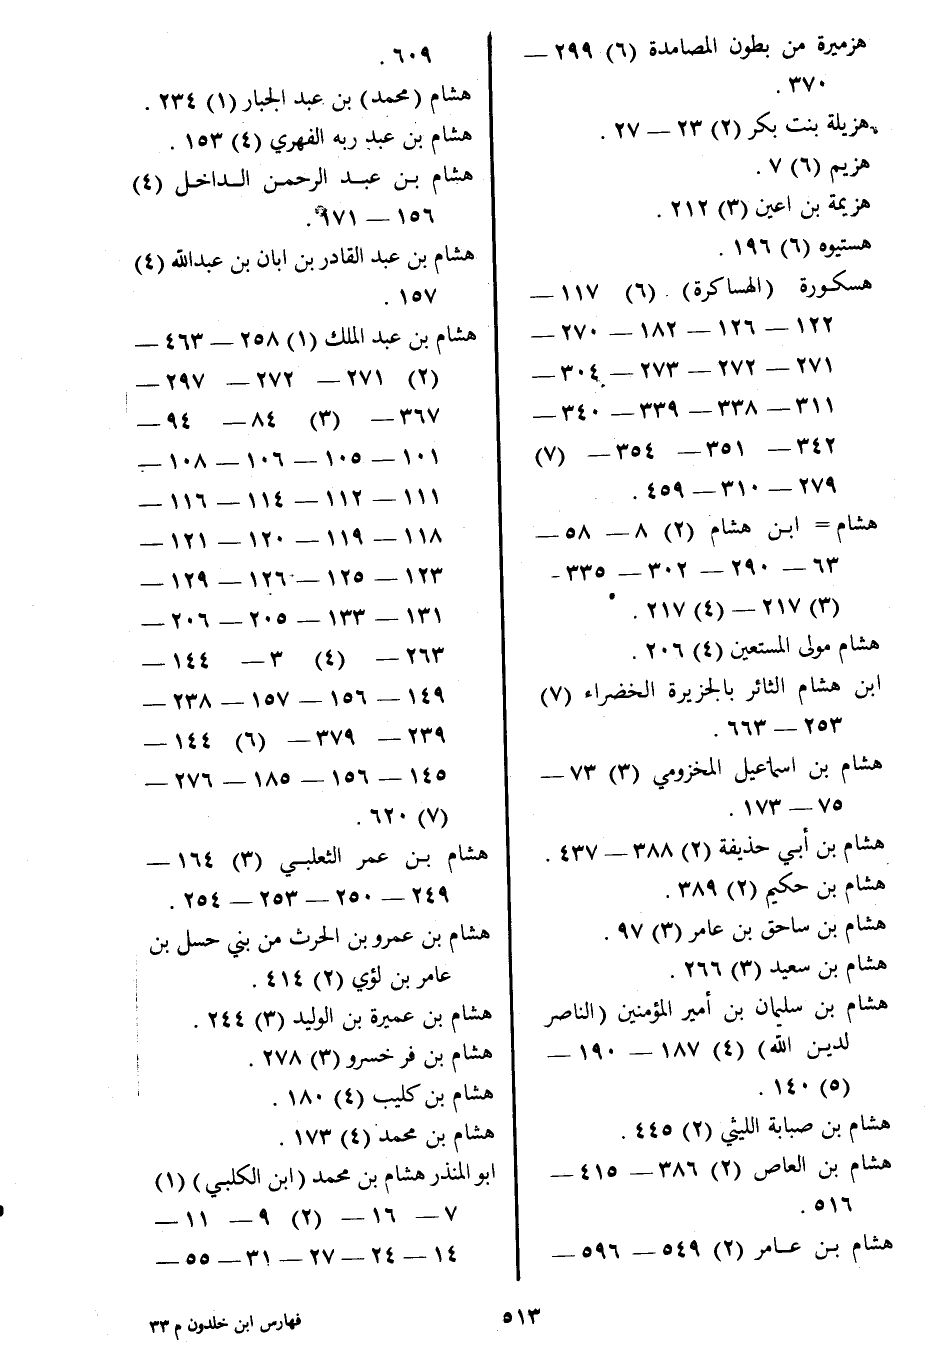 هزميرة من بطون المصامدة (٦) ٢٩٩ —
٣٧٠ .
هزيلة بنت بكر (٢) ٢٣ — ٢٧ .
هزيم (٦) ٧ .
هزيمة بن اعين (٣) ٢١٢ .
هستيوه (٦) ١٩٦ .
هسكورة (الهساكرة) (٦) ١١٧ —
١٢٢ — ١٢٦ — ١٨٢ — ٢٧٠ —
٢٧١ — ٢٧٢ — ٢٧٣ — ٣٠٤ —
٣١١ — ٣٣٨ — ٣٣٩ — ٣٤٠ —
٣٤٢ — ٣٥١ — ٣٥٤ — (٧)
٢٧٩ — ٣١٠ — ٤٥٩ .
هشام = ابن هشام (٢) ٨ — ٥٨ —
٦٣ — ٢٩٠ — ٣٠٢ — ٣٣٥ -
(٣) ٢١٧ — (٤) ٢١٧ .
هشام مولى المستعين (٤) ٢٠٦ .
ابن هشام الثائر بالجزيرة الخضراء (٧)
٢٥٣ — ٦٦٣ .
هشام بن اسماعيل المخزومي (٣) ٧٣ —
٧٥ — ١٧٣ .
هشام بن أبي حذيفة (٢) ٣٨٨ — ٤٣٧ .
هشام بن حكيم (٢) ٣٨٩ .
هشام بن ساحق بن عامر (٣) ٩٧ .
هشام بن سعيد (٣) ٢٦٦ .
هشام بن سليمان بن أمير المؤمنين (الناصر
لدين الله) (٤) ١٨٧ — ١٩٠ —
(٥) ١٤٠ .
هشام بن صبابة الليثي (٢) ٤٤٥ .
هشام بن العاص (٢) ٣٨٦ — ٤١٥ —
٥١٦ .
هشام بن عامر (٢) ٥٤٩ — ٥٩٦ —
٦٠٩ .
هشام (محمد) بن عبد الجبار (١) ٢٣٤ .
هشام بن عبد ربه الفهري (٤) ١٥٣ .
هشام بن عبد الرحمن الداخل (٤)
١٥٦ — ٩٧١ .
هشام بن عبد القادر بن ابان بن عبدالله (٤)
١٥٧ .
هشام بن عبد الملك (١) ٢٥٨ — ٤٦٣ —
(٢) ٢٧١ — ٢٧٢ — ٢٩٧ —
٣٦٧ — (٣) ٨٤ — ٩٤ —
١٠١ — ١٠٥ — ١٠٦ — ١٠٨ —
١١١ — ١١٢ — ١١٤ — ١١٦ —
١١٨ — ١١٩ — ١٢٠ — ١٢١ —
١٢٣ — ١٢٥ — ١٢٦ — ١٢٩ —
١٣١ — ١٣٣ — ٢٠٥ — ٢٠٦ —
٢٦٣ — (٤) ٣ — ١٤٤ —
١٤٩ — ١٥٦ — ١٥٧ — ٢٣٨ —
٢٣٩ — ٣٧٩ — (٦) ١٤٤ —
١٤٥ — ١٥٦ — ١٨٥ — ٢٧٦ —
(٧) ٦٢٠ .
هشام بن عمر الثعلبي (٣) ١٦٤ —
٢٤٩ — ٢٥٠ — ٢٥٣ — ٢٥٤ .
هشام بن عمرو بن الحرث من بني حسل بن
عامر بن لؤي (٢) ٤١٤ .
هشام بن عميرة بن الوليد (٣) ٢٤٤ .
هشام بن فر خسرو (٣) ٢٧٨ .
هشام بن كليب (٤) ١٨٠ .
هشام بن محمد (٤) ١٧٣ .
ابو المنذر هشام بن محمد (ابن الكلبي) (١)
٧ — ١٦ — (٢) ٩ — ١١ —
١٤ — ٢٤ — ٢٧ — ٣١ — ٥٥ —
٥١٣
فهارس ابن خلدون م ٣٣